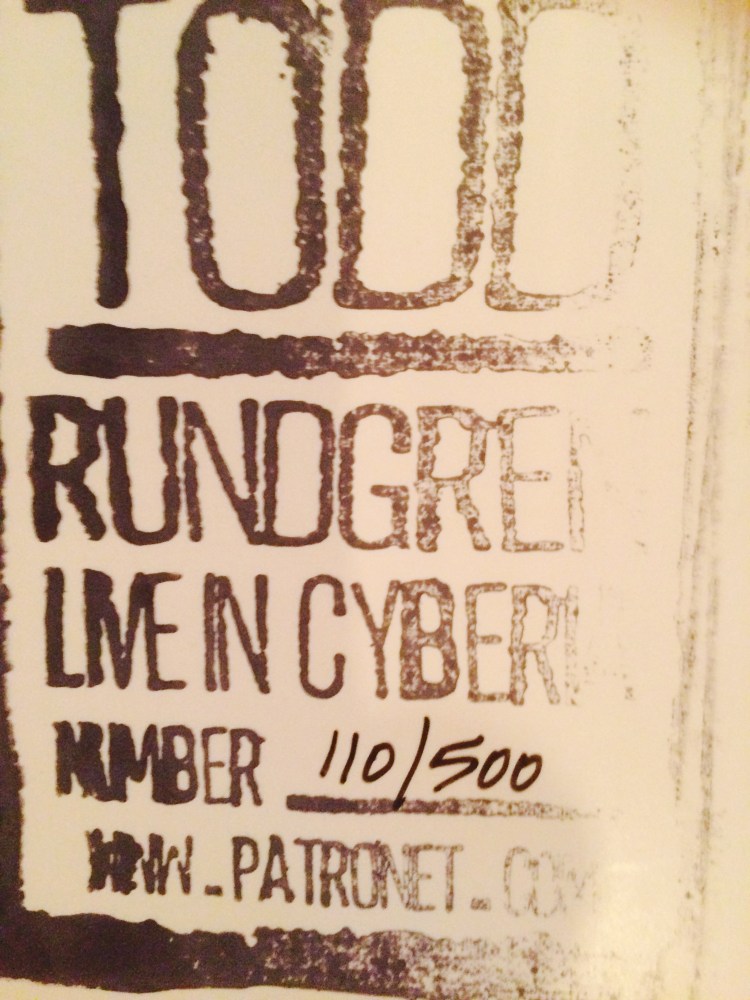 TODD
RUNDGREN
LIVE IN CYBER
NUMBER 110/500
WWW.PATRONET.COM